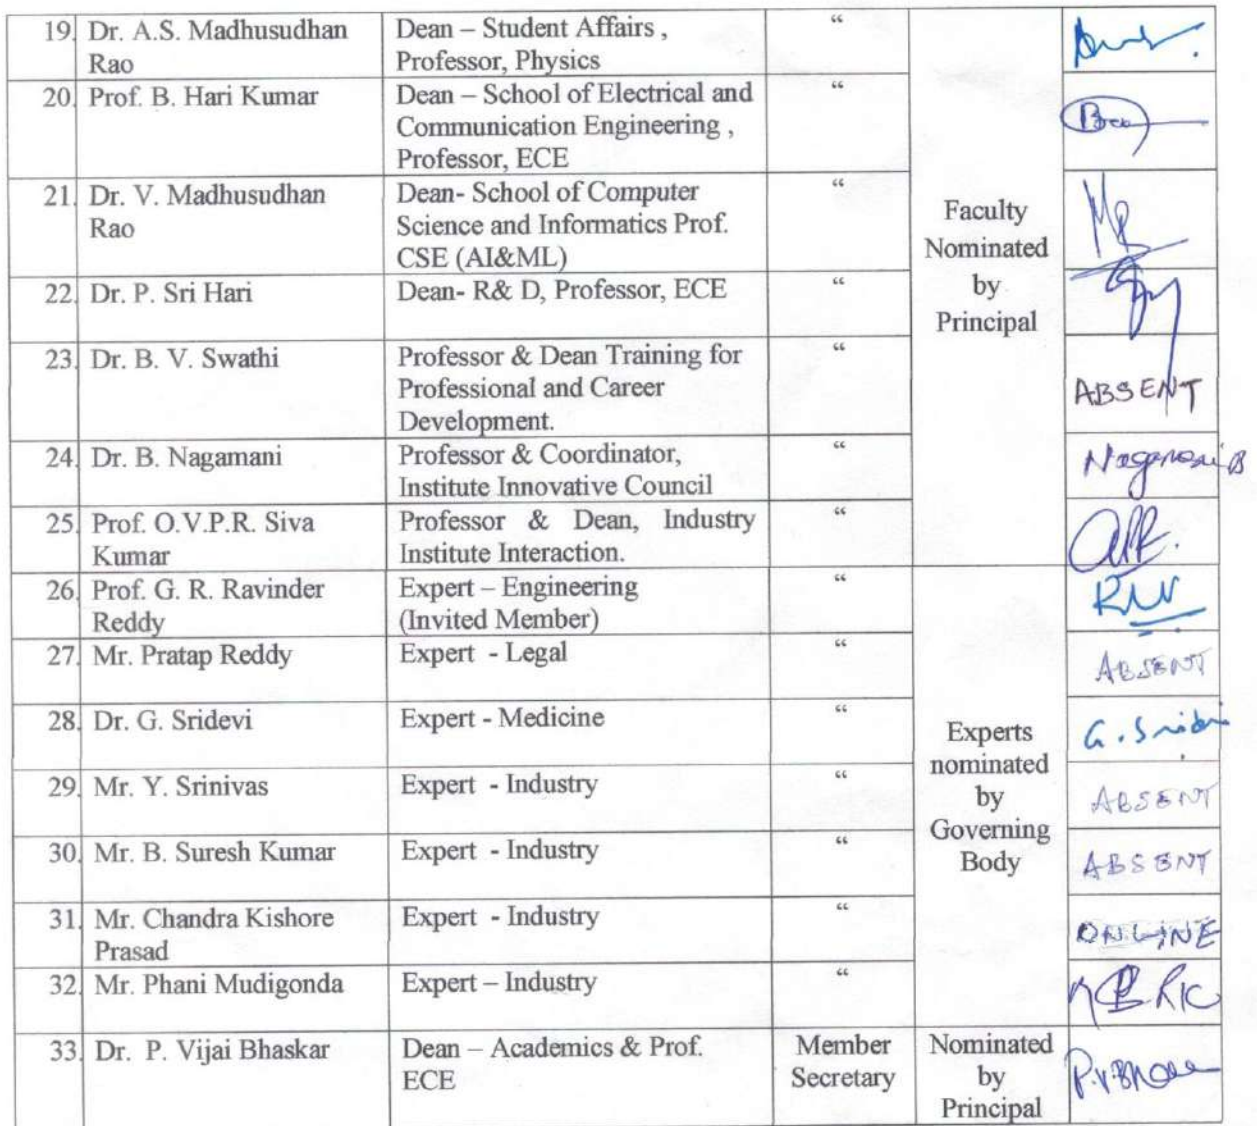 19. Dr. A.S. Madhusudhan Rao Dean – Student Affairs , “
Professor, Physics
20. Prof. B. Hari Kumar Dean – School of Electrical and “
Communication Engineering ,
Professor, ECE
21. Dr. V. Madhusudhan Rao Dean- School of Computer “
Science and Informatics Prof.
CSE (AI&ML)
Faculty
Nominated
by
Principal
22. Dr. P. Sri Hari Dean- R& D, Professor, ECE “
23. Dr. B. V. Swathi Professor & Dean Training for “
Professional and Career ABSENT
Development.
24. Dr. B. Nagamani Professor & Coordinator, “
Institute Innovative Council Nagamani B
25. Prof. O.V.P.R. Siva Kumar Professor & Dean, Industry “
Institute Interaction.
26. Prof. G. R. Ravinder Reddy Expert – Engineering “
(Invited Member)
27. Mr. Pratap Reddy Expert - Legal “ ABSENT
28. Dr. G. Sridevi Expert - Medicine “
Experts
nominated
by
Governing
Body
29. Mr. Y. Srinivas Expert - Industry “ ABSENT
30. Mr. B. Suresh Kumar Expert - Industry “ ABSENT
31. Mr. Chandra Kishore Prasad Expert - Industry “ ONLINE
32. Mr. Phani Mudigonda Expert – Industry “
33. Dr. P. Vijai Bhaskar Dean – Academics & Prof. ECE Member Secretary Nominated by Principal